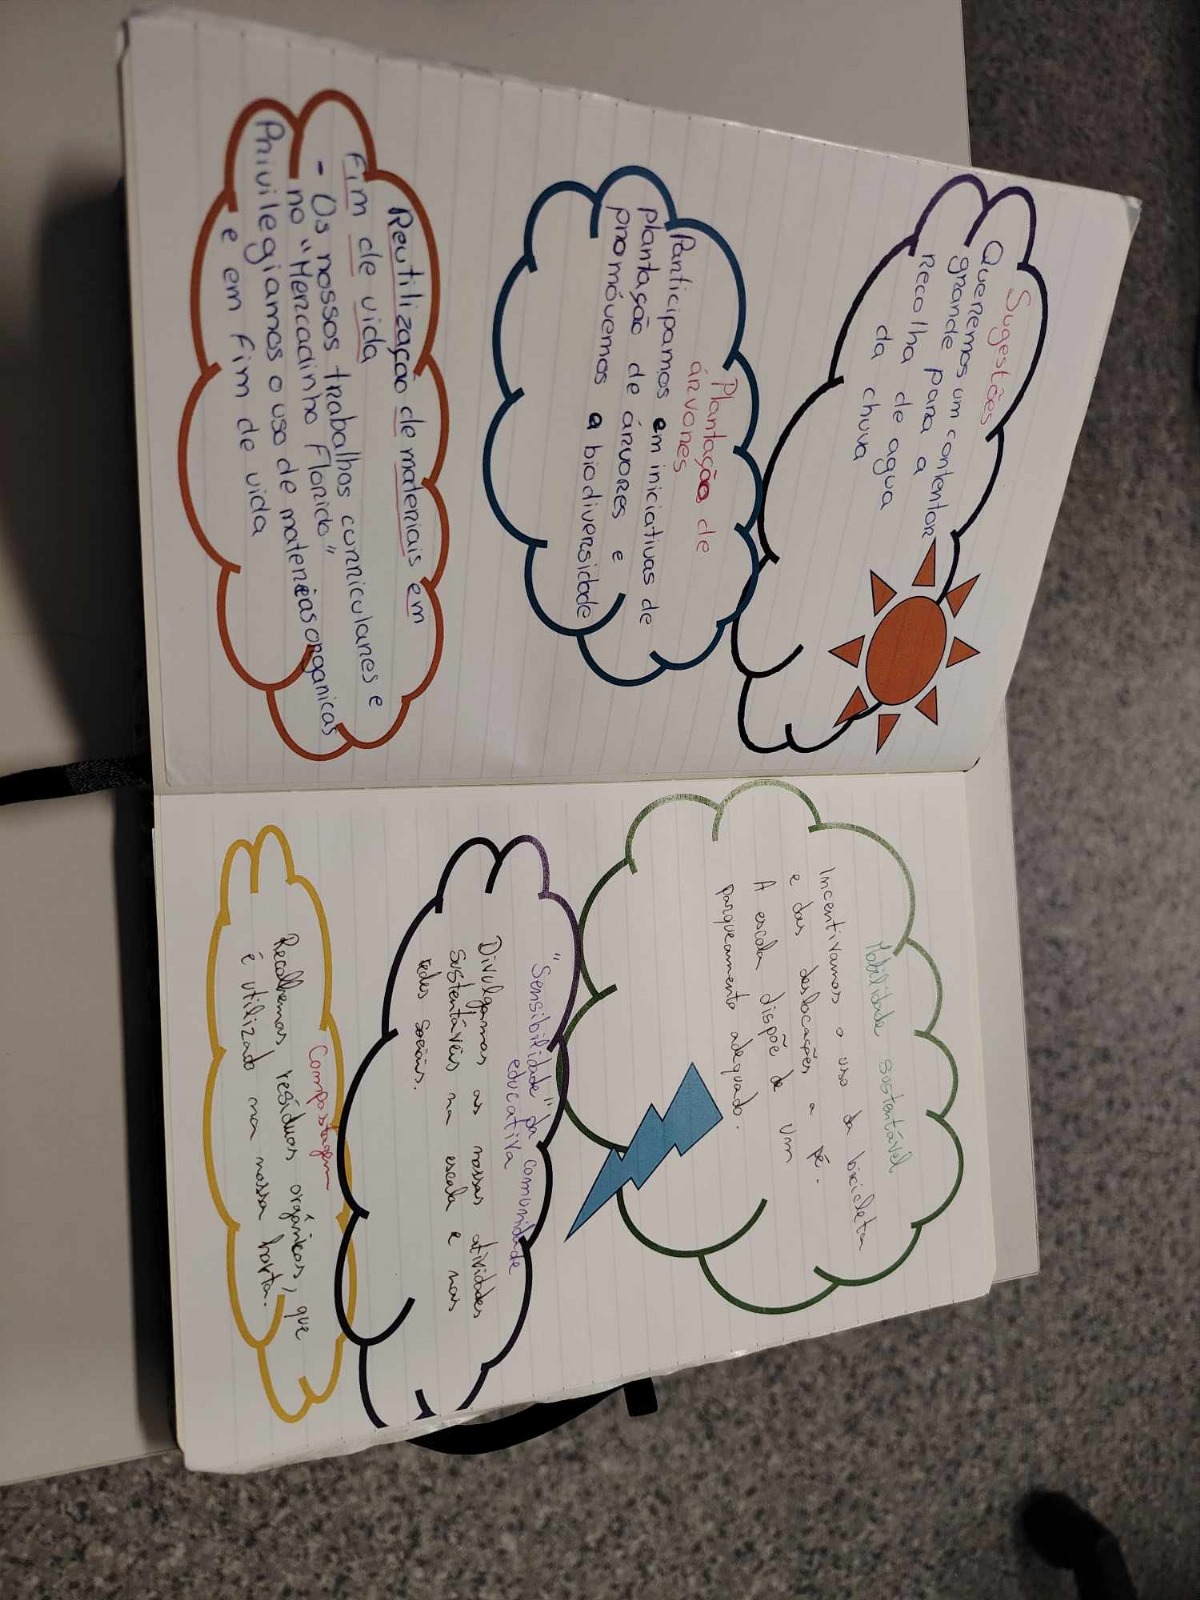 Sugestões
Queremos um contentor
grande para a
recolha de agua
da chuva
Plantação de
árvores
Participamos em iniciativas de
plantação de árvores e
promóvemos a biodiversidade
Reutilização de materiais em
fim de vida
- Os nossos trabalhos curriculares e
no "Mercadinho Florido"
Privilegiamos o uso de materias organicas
e em fim de vida
Mobilidade sustentável
Incentivamos o uso da bicicleta
e das deslocações a pé.
A escola dispõe de um
parqueamento adequado.
"Sensibilidade" da comunidade
educativa
Divulgamos as nossas atividades
sustentáveis na escola e nas
redes sociais.
Compostagem
Recolhemos resíduos orgânicos, que
é utilizado na nossa horta.